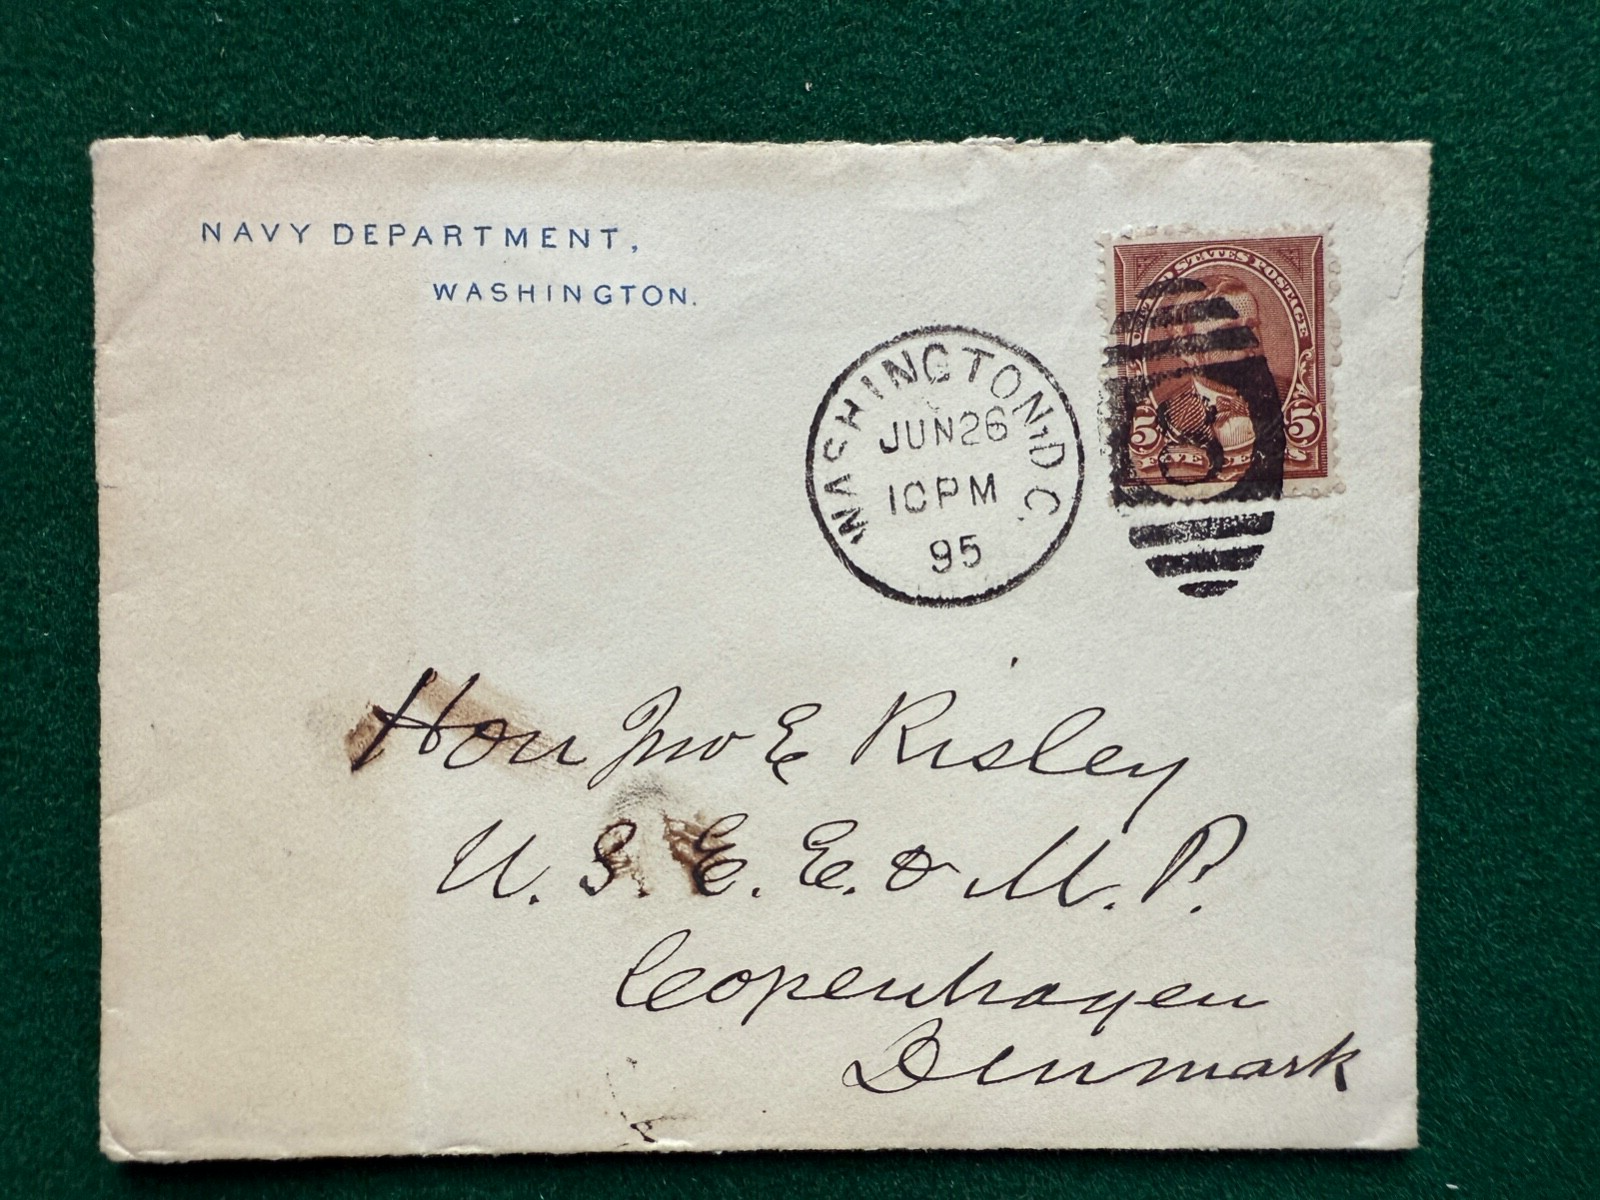 NAVY DEPARTMENT,
WASHINGTON.
UNITED STATES POSTAGE
5 5
WASHINGTON, D.C.
JUN 26
10 PM
95
Hon Jno E Risley
U. S. E. E. & M. P.
Copenhagen
Denmark